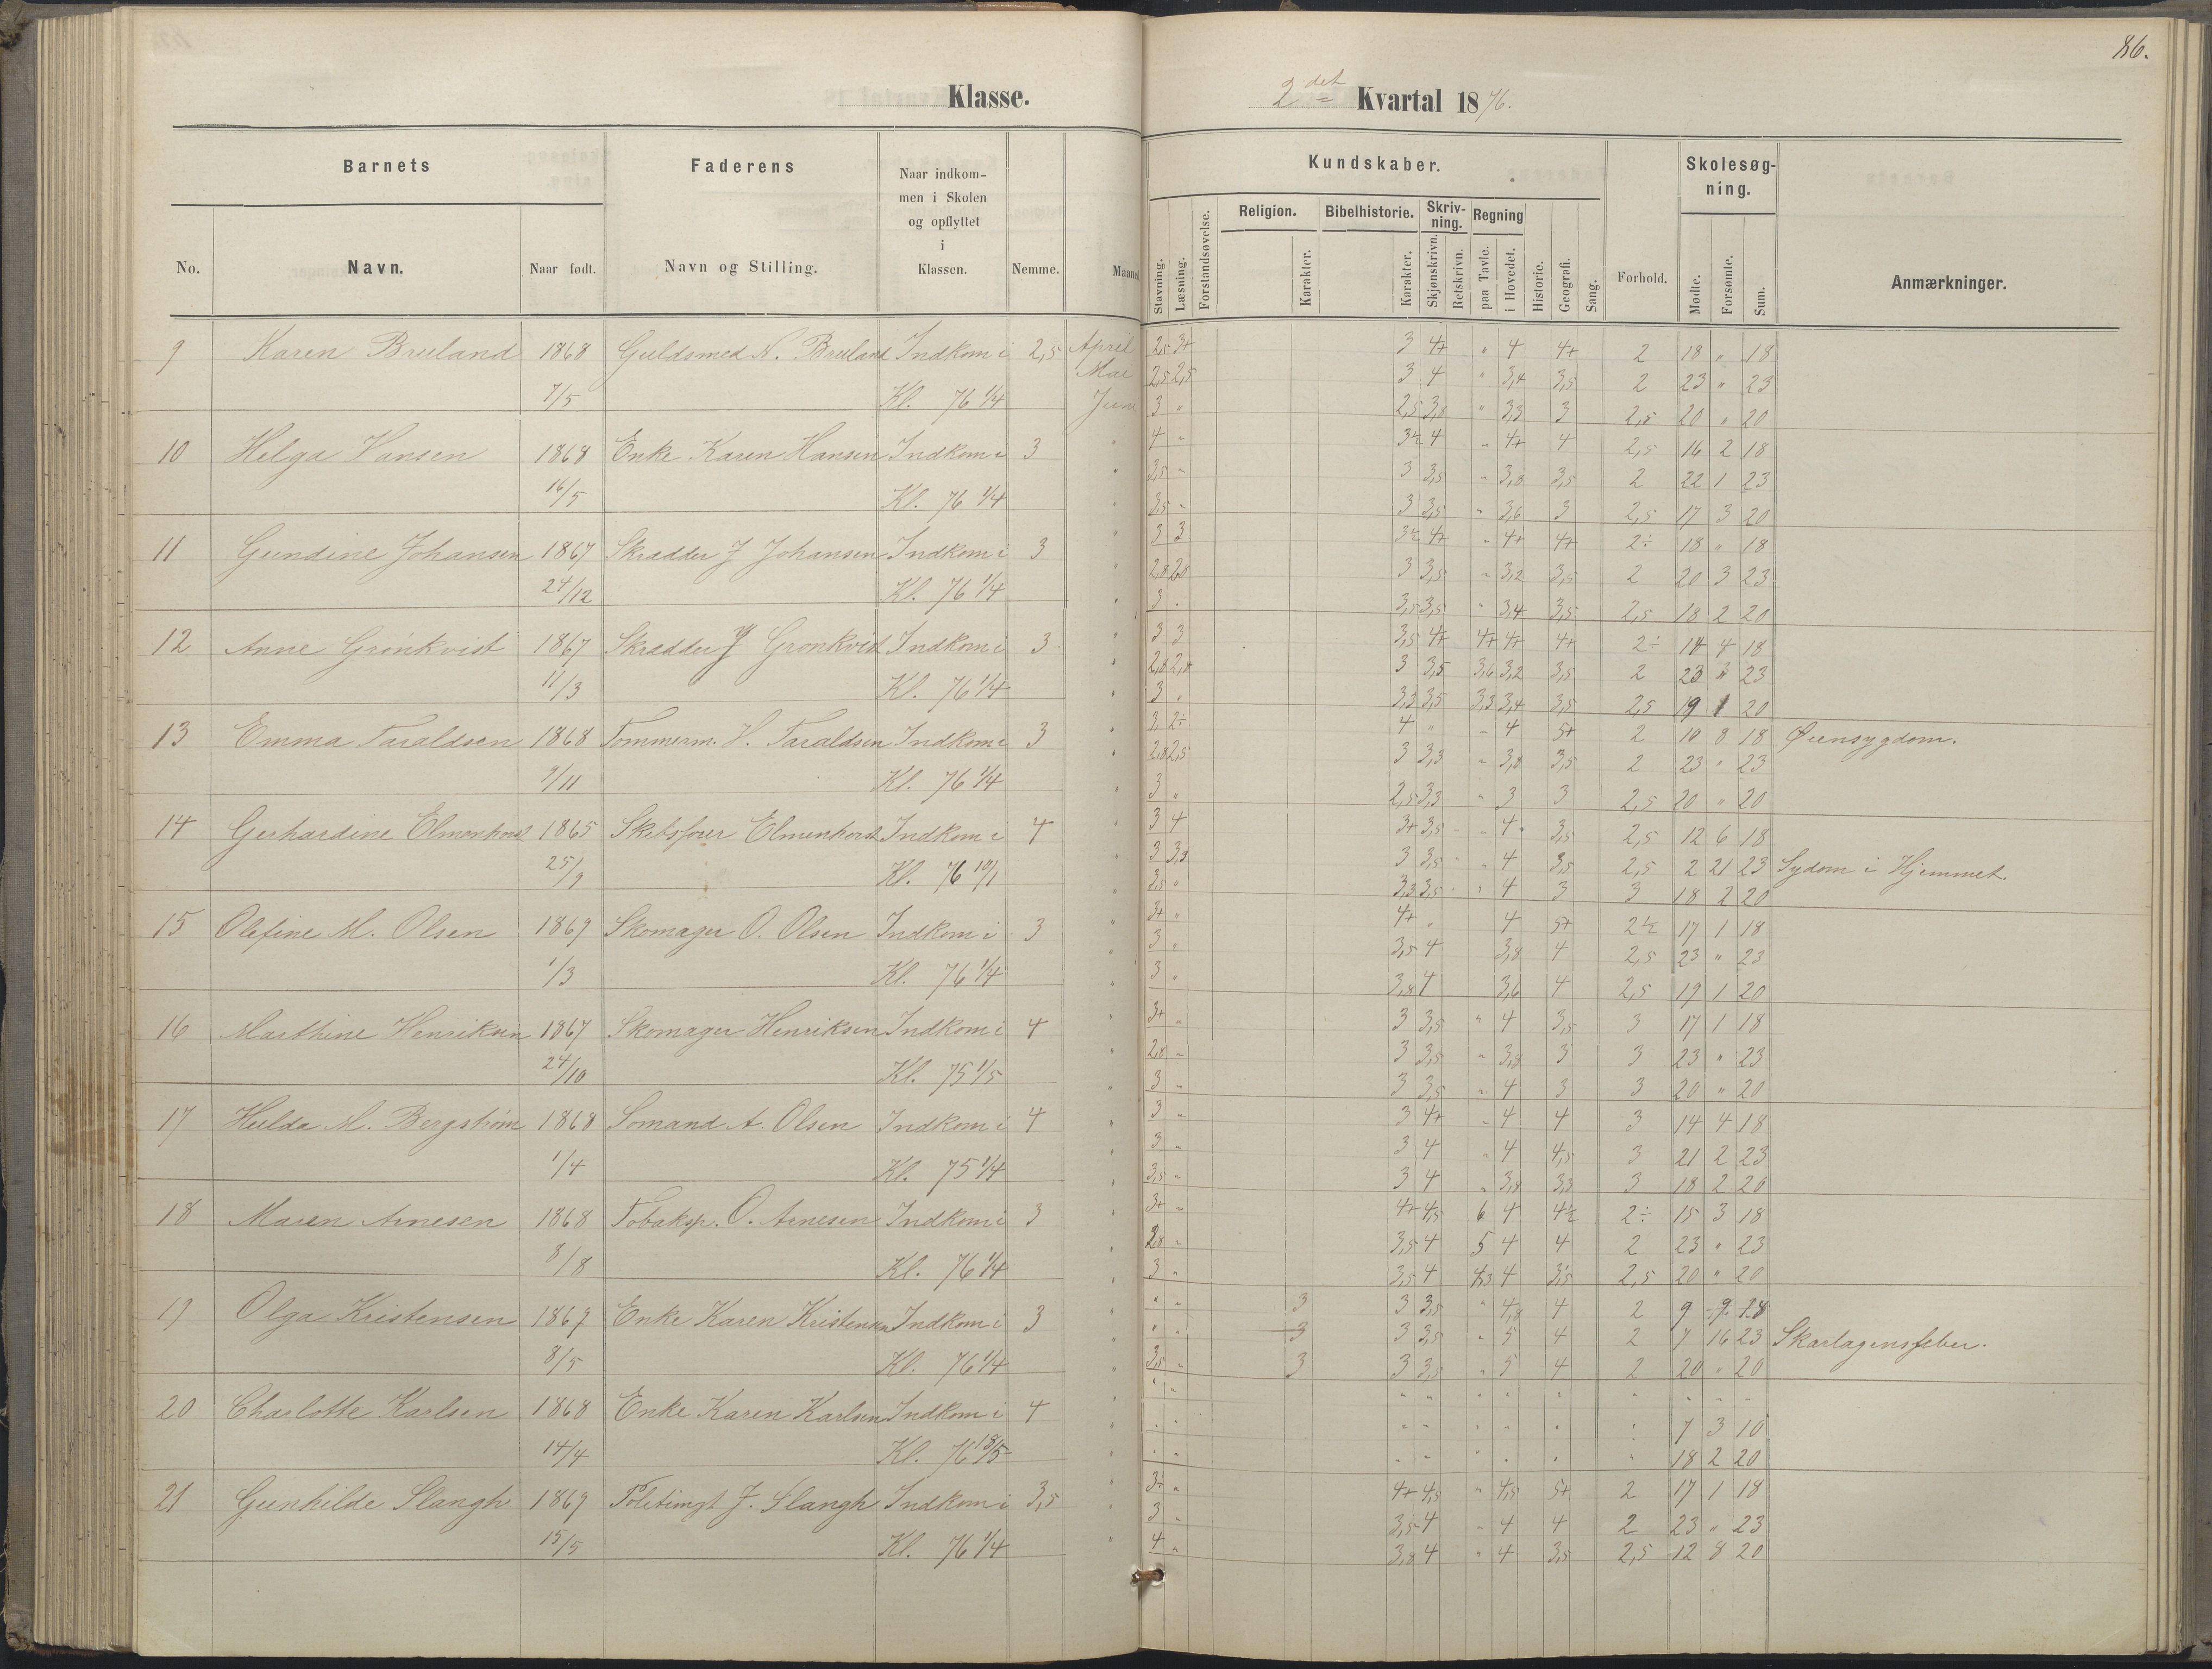 86.
Klasse.
2det Kvartal 1876.
Barnets Faderens Naar indkom- men i Skolen og opflyttet i Klassen. Nemme. Maaned
No. Navn. Naar født. Navn og Stilling.
Kundskaber. Forhold. Skolesøg- ning. Anmærkninger.
Religion. Bibelhistorie. Skriv- ning. Regning
Stavning. Læsning. Forstandsøvelse. Karakter. Karakter. Skjønskrivn. Retskrivn. paa Tavle. i Hovedet. Historie. Geografi. Sang. Mødte. Forsømte. Sum.
9 Karen Breiland 1868 Guldsmed N. Breiland Indkom i 2,5 April 2,5 3+ 3 4+ " 4 4+ 2 18 " 18
Mai 2,5 2,5 3 4 " 3,4 3,5 2 23 " 23
7/5 Kl. 76 1/4 Juni 3 " 2,5 3,8 " 3,3 3 2,5 20 " 20
4 " 3½ 4 " 4+ 4 2,5 16 2 18
10 Helga Hansen 1868 Enke Karen Hansen Indkom i 3
3,5 " 3 3,5 " 3,8 3,5 2 22 1 23
16/5 Kl. 76 1/4
3,5 " 3 3,5 " 3,6 3 2,5 17 3 20
3 3 3½ 4+ " 4+ 4+ 2÷ 18 " 18
11 Gundine Johansen 1867 Skrædder J Johansen Indkom i 3
2,8 2,8 3 3,5 " 3,2 3,5 2 20 3 23
24/12 Kl. 76 1/4
3 " 3,5 3,5 " 3,4 3,5 2,5 18 2 20
12 Anne Grönkvist 1867 Skrædder J Grönkvist Indkom i 3
3 3 3,5 4+ 4+ 4+ 4+ 2÷ 14 4 18
2,8 2,8 3 3,5 3,6 3,2 3,5 2 23 " 23
11/3 Kl. 76 1/4
3 " 3,3 3,5 3,3 3,4 3,5 2,5 19 1 20
13 Emma Taraldsen 1868 Tommerm. H. Taraldsen Indkom i 3
2 2÷ 4 " " 4 5+ 2 10 8 18 Øiensygdom.
2,8 2,5 3 3,3 " 3,8 3,5 2 23 " 23
9/11 Kl. 76 1/4
3 " 2,5 3,3 " 3 3 2,5 20 " 20
14 Gerhardine Elmenhorst 1865 Skibsfører Elmenhorst Indkom i 4
3 4 3+ 3,5 " 4 3,5 2,5 12 6 18
25/9 Kl. 76 10/1
3 3,3 3 3,5 " 4 3,5 2,5 2 21 23 Sydom i Hjemmet.
3,5 " 3,3 3,5 " 4 3 3 18 2 20
15 Olefine M. Olsen 1869 Skomager O. Olsen Indkom i 3
3+ " 4+ " 4 5+ 2½ 17 1 18
3 " 3,5 4 3,8 4 2,5 23 " 23
1/3 Kl. 76 1/4
3 " 3,8 4 3,6 4 2,5 19 1 20
16 Marthine Henriksen 1867 Skomager Henriksen Indkom i 4
3+ " 3 3,5 " 4 3,5 3 17 1 18
2,8 " 3 3,5 " 3,8 3 3 23 " 23
24/10 Kl. 75 1/5
3 " 3 3,5 " 4 3 3 20 " 20
17 Hulda M. Bergstrøm 1868 Sømand A. Olsen Indkom i 4
3 " 3 4+ " 4 4 3 14 4 18
3 " 3 4 " 4 4,5 3 21 2 23
1/4 Kl. 75 1/4
3,5 " 3 4 " 3,8 3,3 3 18 2 20
18 Maren Arnesen 1868 Tobaksp. O. Arnesen Indkom i 3
3+ " 4+ 4,5 6 4 4½ 2÷ 15 3 18
2,8 " 3,5 4 5 4 4 2 23 " 23
8/8 Kl. 76 1/4
3 " 3,5 4 4,3 4 3,5 2,5 20 " 20
19 Olga Kristensen 1869 Enke Karen Kristensen Indkom i 3
" " 3 3 3,5 " 4,8 4 2 9 9 18
" " 3 3 3,5 " 5 4 2 7 16 23 Skarlagensfeber.
8/5 Kl. 76 1/4
3,5 " 3 3 3,5 " 5 4 2 20 " 20
20 Charlotte Karlsen 1868 Enke Karen Karlsen Indkom i 4
7 3 10
14/4 Kl. 76 18/5
18 2 20
21 Gunhilde Slangh 1869 Politimgt J. Slangh Indkom i 3,5
3÷ " 4+ 4,5 " 4,5 5+ 2 17 1 18
3 " 3,5 4 " 4 4 2 23 " 23
15/5 Kl. 76 1/4
4 " 3,8 4 " 4 3,5 2,5 12 8 20